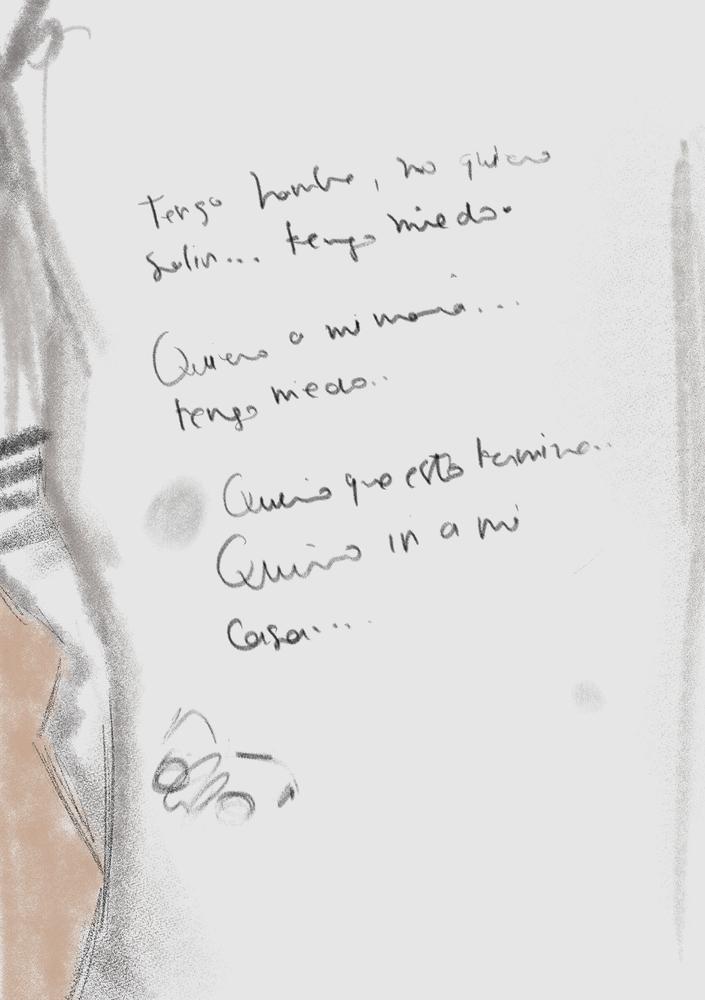 Tengo hambre, no quiero
salir... tengo miedo.
Quiero a mi mamá...
tengo miedo..
Quiero que esto termine..
Quiero ir a mi
casa...